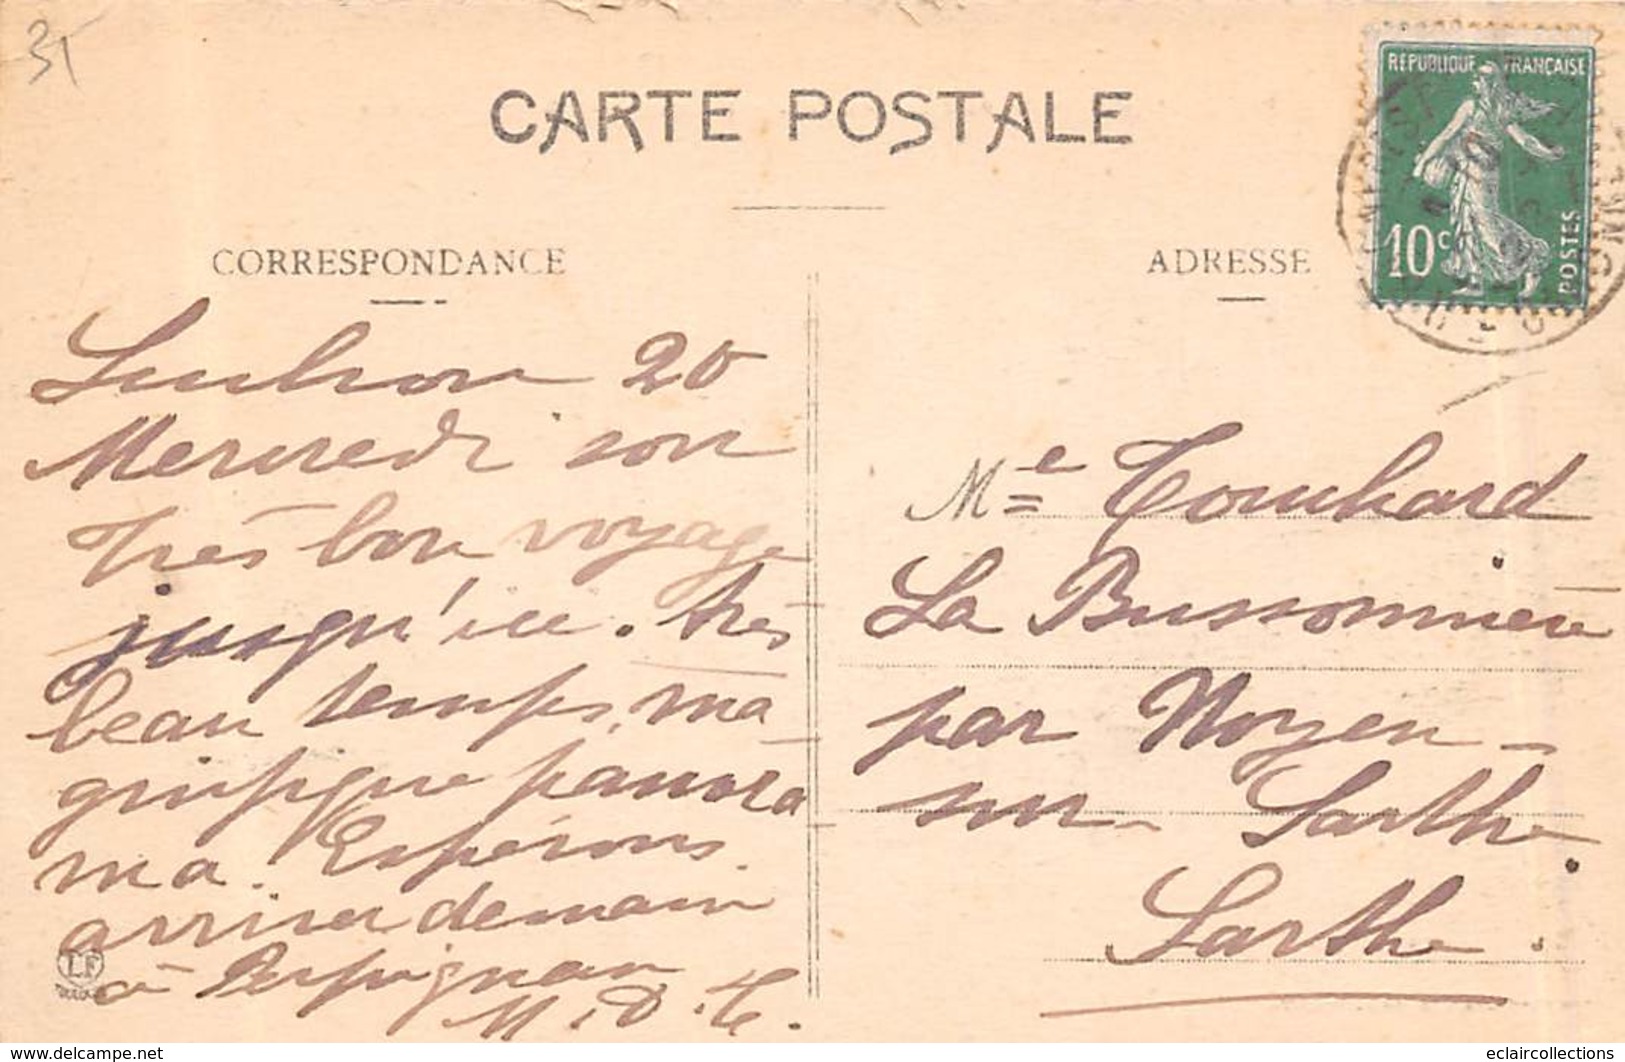 31
CARTE POSTALE
RÉPUBLIQUE FRANÇAISE
10c
POSTES
CORRESPONDANCE
ADRESSE
Luchon 20
Mercredi soir
très bon voyage
jusqu'ici. très
beau temps, ma
gnifique panora
ma. Espérons
arriver demain
à Perpignan
M. D. T.
LF
Me Touchard
La Bussonnière
par Noyen
sur Sarthe
Sarthe.
www.delcampe.net
eclaircollections